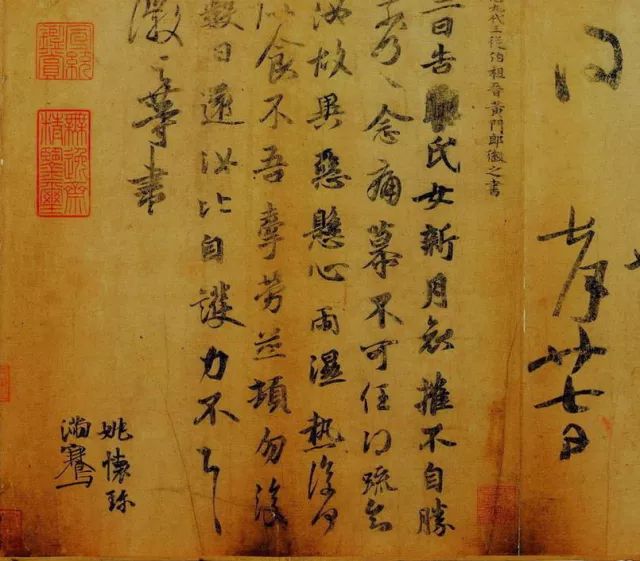 七月廿七日
九代三從伯祖晉黃門郎徽之書
二日告氏女新月哀摧不自勝
奈何奈何念痛慕不可任得疏知
汝故異惡懸心雨濕熱復何
似食不吾牽勞並頓勿復
數日還汝比自護力不具
徽之等書
姚懷珍
滿騫
宣統鑑賞
無逸齋精鑒璽